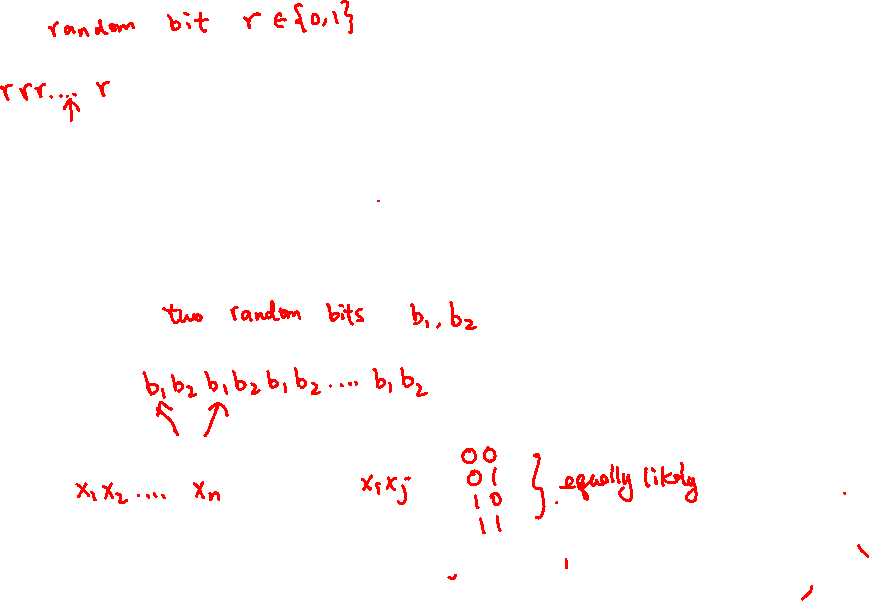 random bit r ∈ {0,1}
r r r .... r
two random bits b₁, b₂
b₁ b₂ b₁ b₂ b₁ b₂ .... b₁ b₂
x₁ x₂ .... xₙ
xᵢ xⱼ
0 0
0 1
1 0
1 1
} equally likely